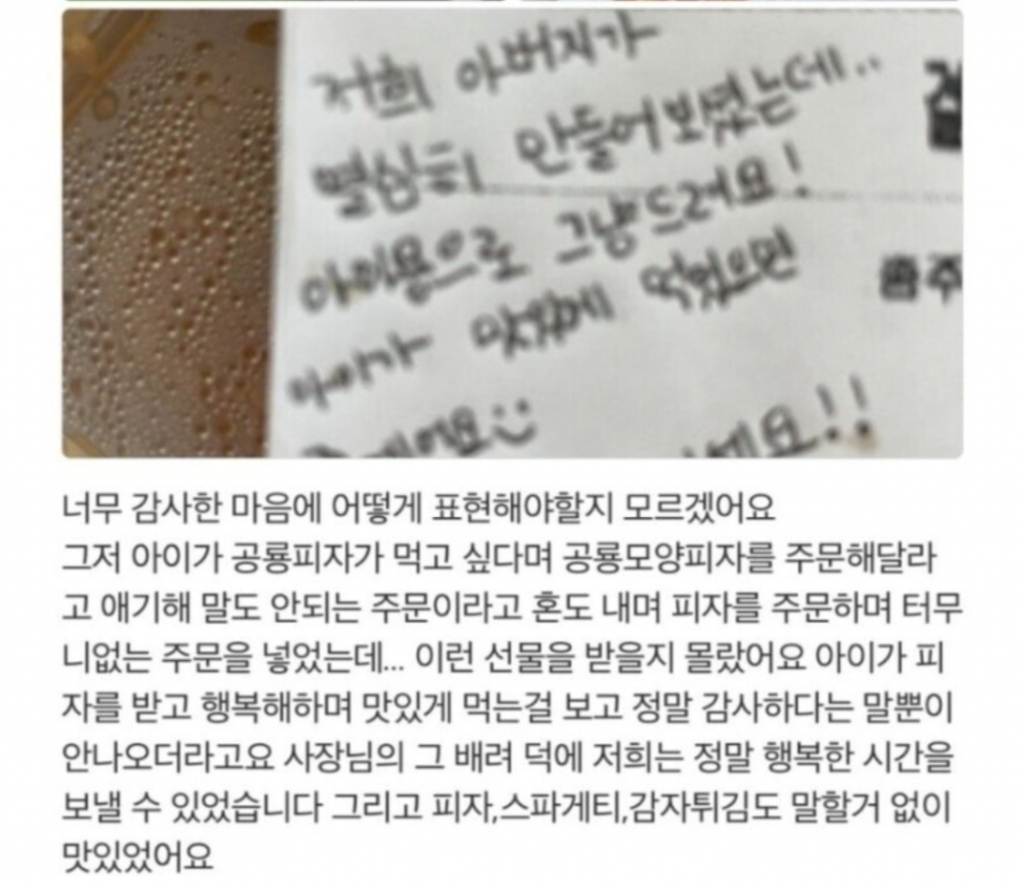 저희 아버지가
열심히 만들어보셨는데..
아이용으로 그냥드려요!
아이가 맛있게 먹었으면
세요!!
너무 감사한 마음에 어떻게 표현해야할지 모르겠어요
그저 아이가 공룡피자가 먹고 싶다며 공룡모양피자를 주문해달라
고 얘기해 말도 안되는 주문이라고 혼도 내며 피자를 주문하며 터무
니없는 주문을 넣었는데... 이런 선물을 받을지 몰랐어요 아이가 피
자를 받고 행복해하며 맛있게 먹는걸 보고 정말 감사하다는 말뿐이
안나오더라고요 사장님의 그 배려 덕에 저희는 정말 행복한 시간을
보낼 수 있었습니다 그리고 피자,스파게티,감자튀김도 말할거 없이
맛있었어요